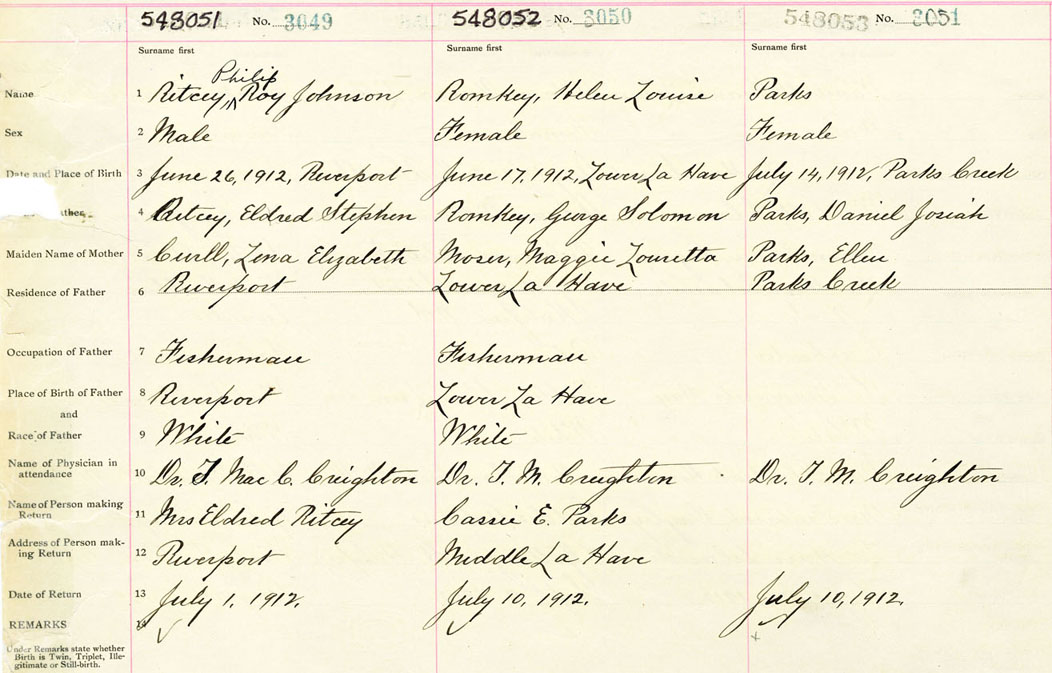 548051 No. 3049 548052 No. 3050 548053 No. 3051
Surname first Surname first Surname first
Philip
Name 1 Ritcey, Roy Johnson Romkey, Helen Louise Parks
Sex 2 Male Female Female
Date and Place of Birth 3 June 26, 1912, Riverport June 17, 1912, Lower La Have July 14, 1912, Parks Creek
ather 4 Ritcey, Eldred Stephen Romkey, George Solomon Parks, Daniel Josiah
Maiden Name of Mother 5 Curll, Lena Elizabeth Moser, Maggie Louretta Parks, Ellen
Residence of Father 6 Riverport Lower La Have Parks Creek
Occupation of Father 7 Fisherman Fisherman
Place of Birth of Father 8 Riverport Lower La Have
and
Race of Father 9 White White
Name of Physician in
attendance 10 Dr. T. Mac C. Creighton Dr. T. M. Creighton Dr. T. M. Creighton
Name of Person making
Return 11 Mrs Eldred Ritcey Cassie E. Parks
Address of Person mak-
ing Return 12 Riverport Middle La Have
Date of Return 13 July 1, 1912. July 10, 1912. July 10, 1912.
REMARKS 14
Under Remarks state whether
Birth is Twin, Triplet, Ille-
gitimate or Still-birth.